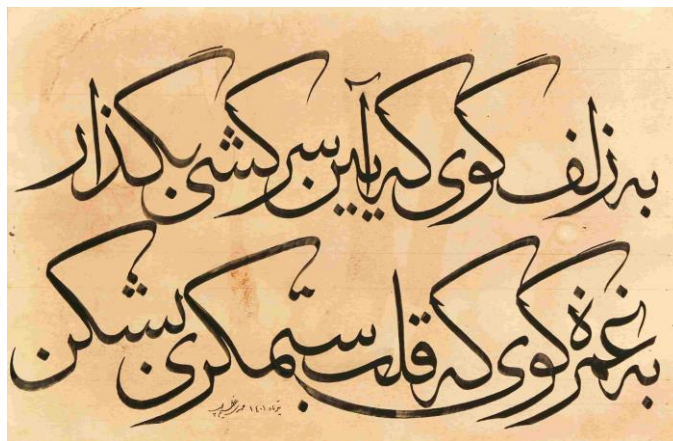 به زلف گوی که آیین سرکشی بگذار
به غمزه گوی که قلب ستمگری بشکن
تیرماه ۱۴۰۱